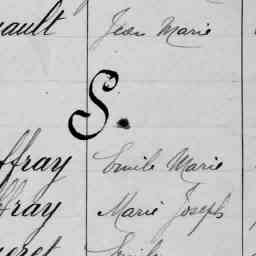 ault Jean Marie
S.
ffray Emile Marie
ffray Marie Joseph
eret Emile